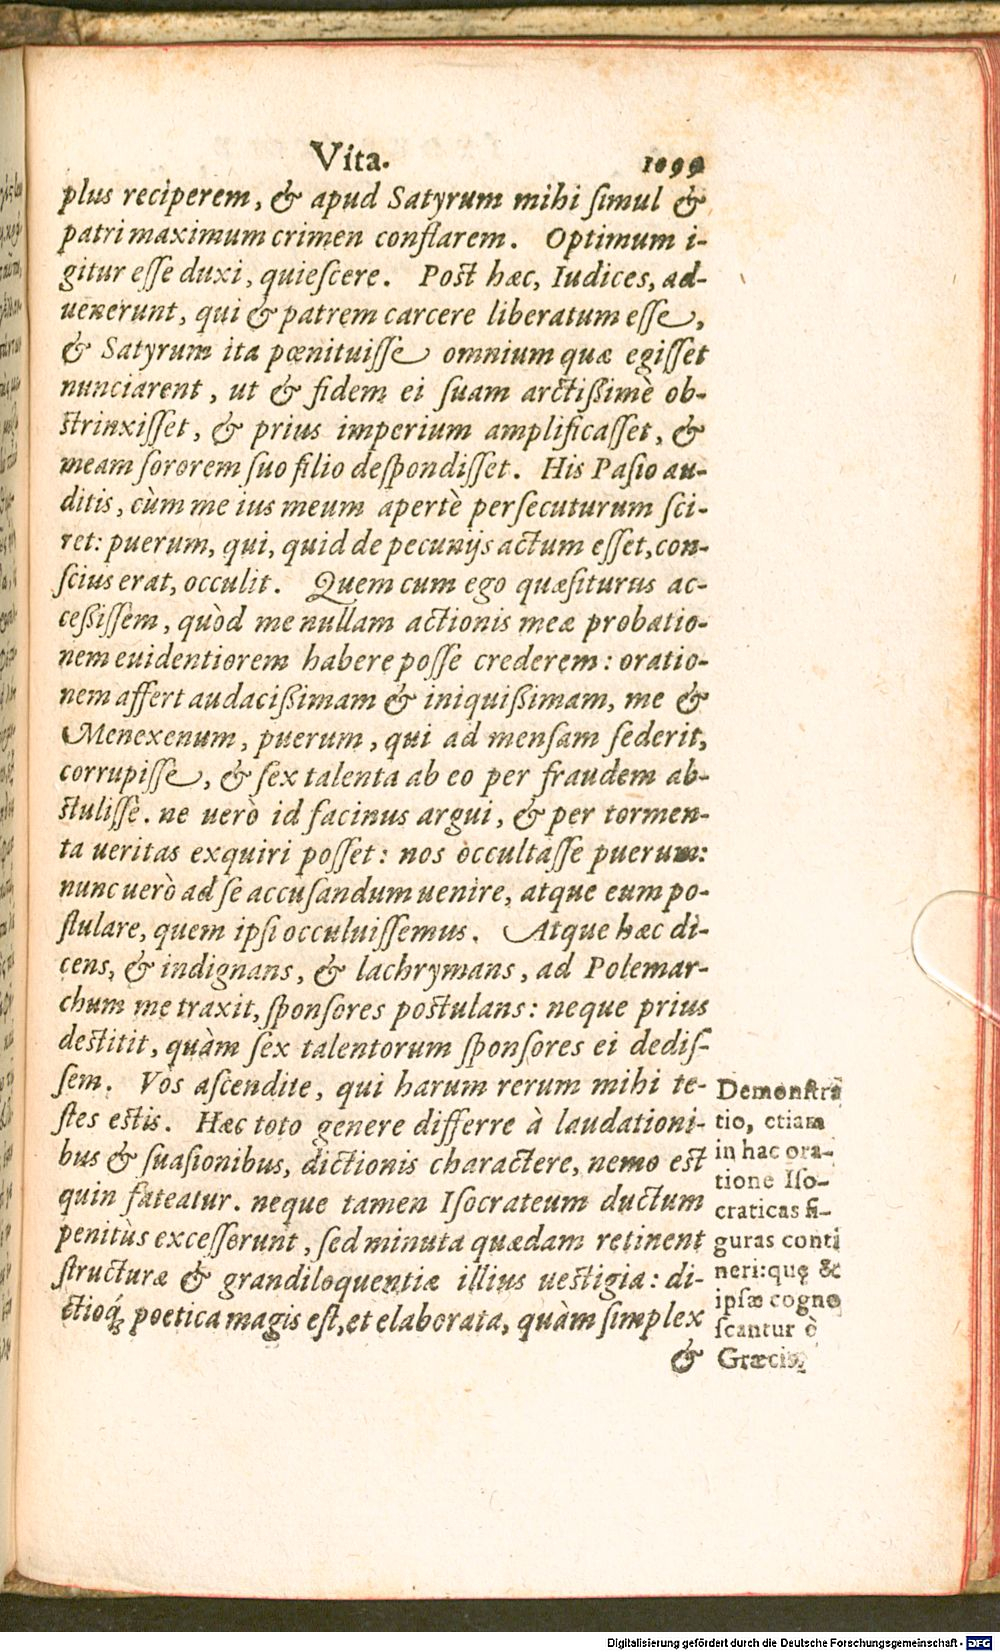 Vita. 1099
plus reciperem, & apud Satyrum mihi ſimul &
patri maximum crimen conflarem. Optimum i-
gitur eſſe duxi, quieſcere. Post hæc, Iudices, ad-
uenerunt, qui & patrem carcere liberatum eſſe,
& Satyrum ita pœnituiſſe omnium quæ egiſſet
nunciarent, ut & fidem ei ſuam arctißimè ob-
strinxiſſet, & prius imperium amplificaſſet, &
meam ſororem ſuo filio deſpondiſſet. His Paſio au-
ditis, cùm me ius meum apertè perſecuturum ſci-
ret: puerum, qui, quid de pecunijs actum eſſet, con-
ſcius erat, occulit. Quem cum ego quæſiturus ac-
ceßiſſem, quòd me nullam actionis meæ probatio-
nem euidentiorem habere poſſe crederem: oratio-
nem affert audacißimam & iniquißimam, me &
Menexenum, puerum, qui ad menſam ſederit,
corrupiſſe, & ſex talenta ab eo per fraudem ab-
stuliſſe. ne uerò id facinus argui, & per tormen-
ta ueritas exquiri poſſet: nos occultaſſe puerum:
nunc uerò ad ſe accuſandum uenire, atque eum po-
ſtulare, quem ipſi occuluiſſemus. Atque hæc di-
cens, & indignans, & lachrymans, ad Polemar-
chum me traxit, ſponſores postulans: neque prius
destitit, quàm ſex talentorum ſponſores ei dediſ-
ſem. Vos aſcendite, qui harum rerum mihi te-
ſtes estis. Hæc toto genere differre à laudationi-
bus & ſuaſionibus, dictionis charactere, nemo est
quin fateatur. neque tamen Iſocrateum ductum
penitùs exceſſerunt, ſed minuta quædam retinent
structuræ & grandiloquentiæ illius ueſtigia: di-
ctioq́; poetica magis eſt, et elaborata, quàm ſimplex
&
Demonſtra
tio, etiam
in hac ora-
tione Iſo-
craticas fi-
guras conti
neri: quę &
ipſæ cogno
ſcantur ò
Græcis,
Digitalisierung gefördert durch die Deutsche Forschungsgemeinschaft - DFG